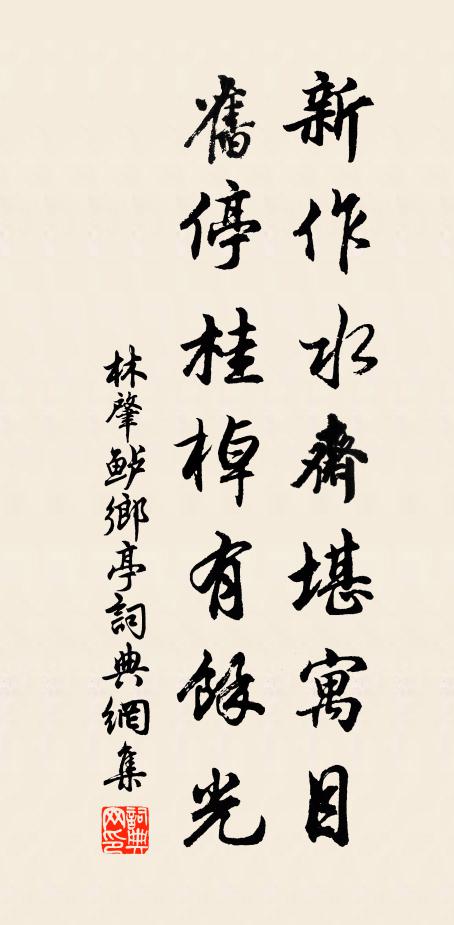 新作水齋堪寓目
舊停桂棹有餘光
林肇鲈鄉亭詞典網集
詞典网印